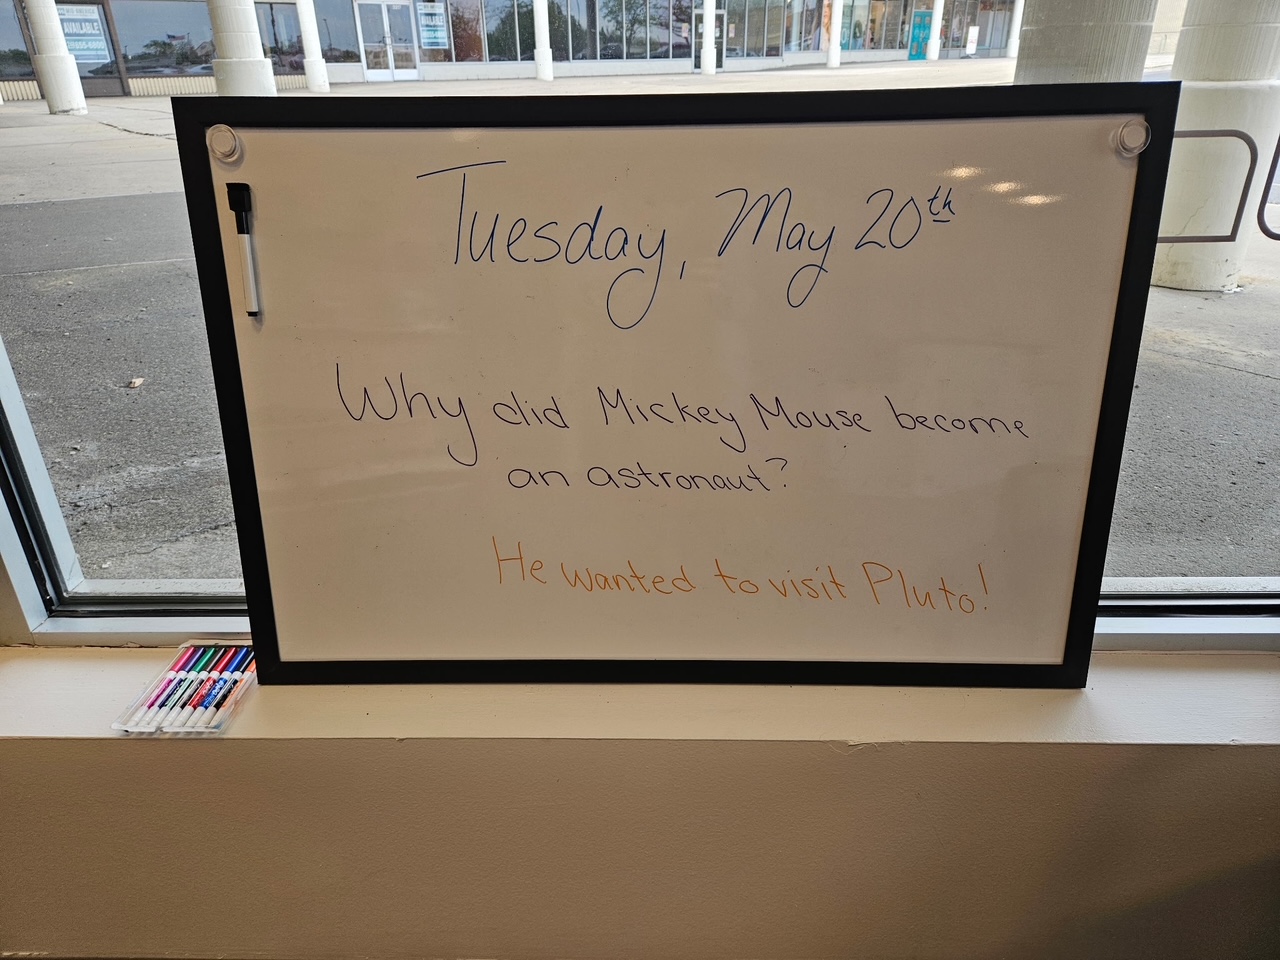 AVAILABLE
Tuesday, May 20th
Why did Mickey Mouse become
an astronaut?
He wanted to visit Pluto!